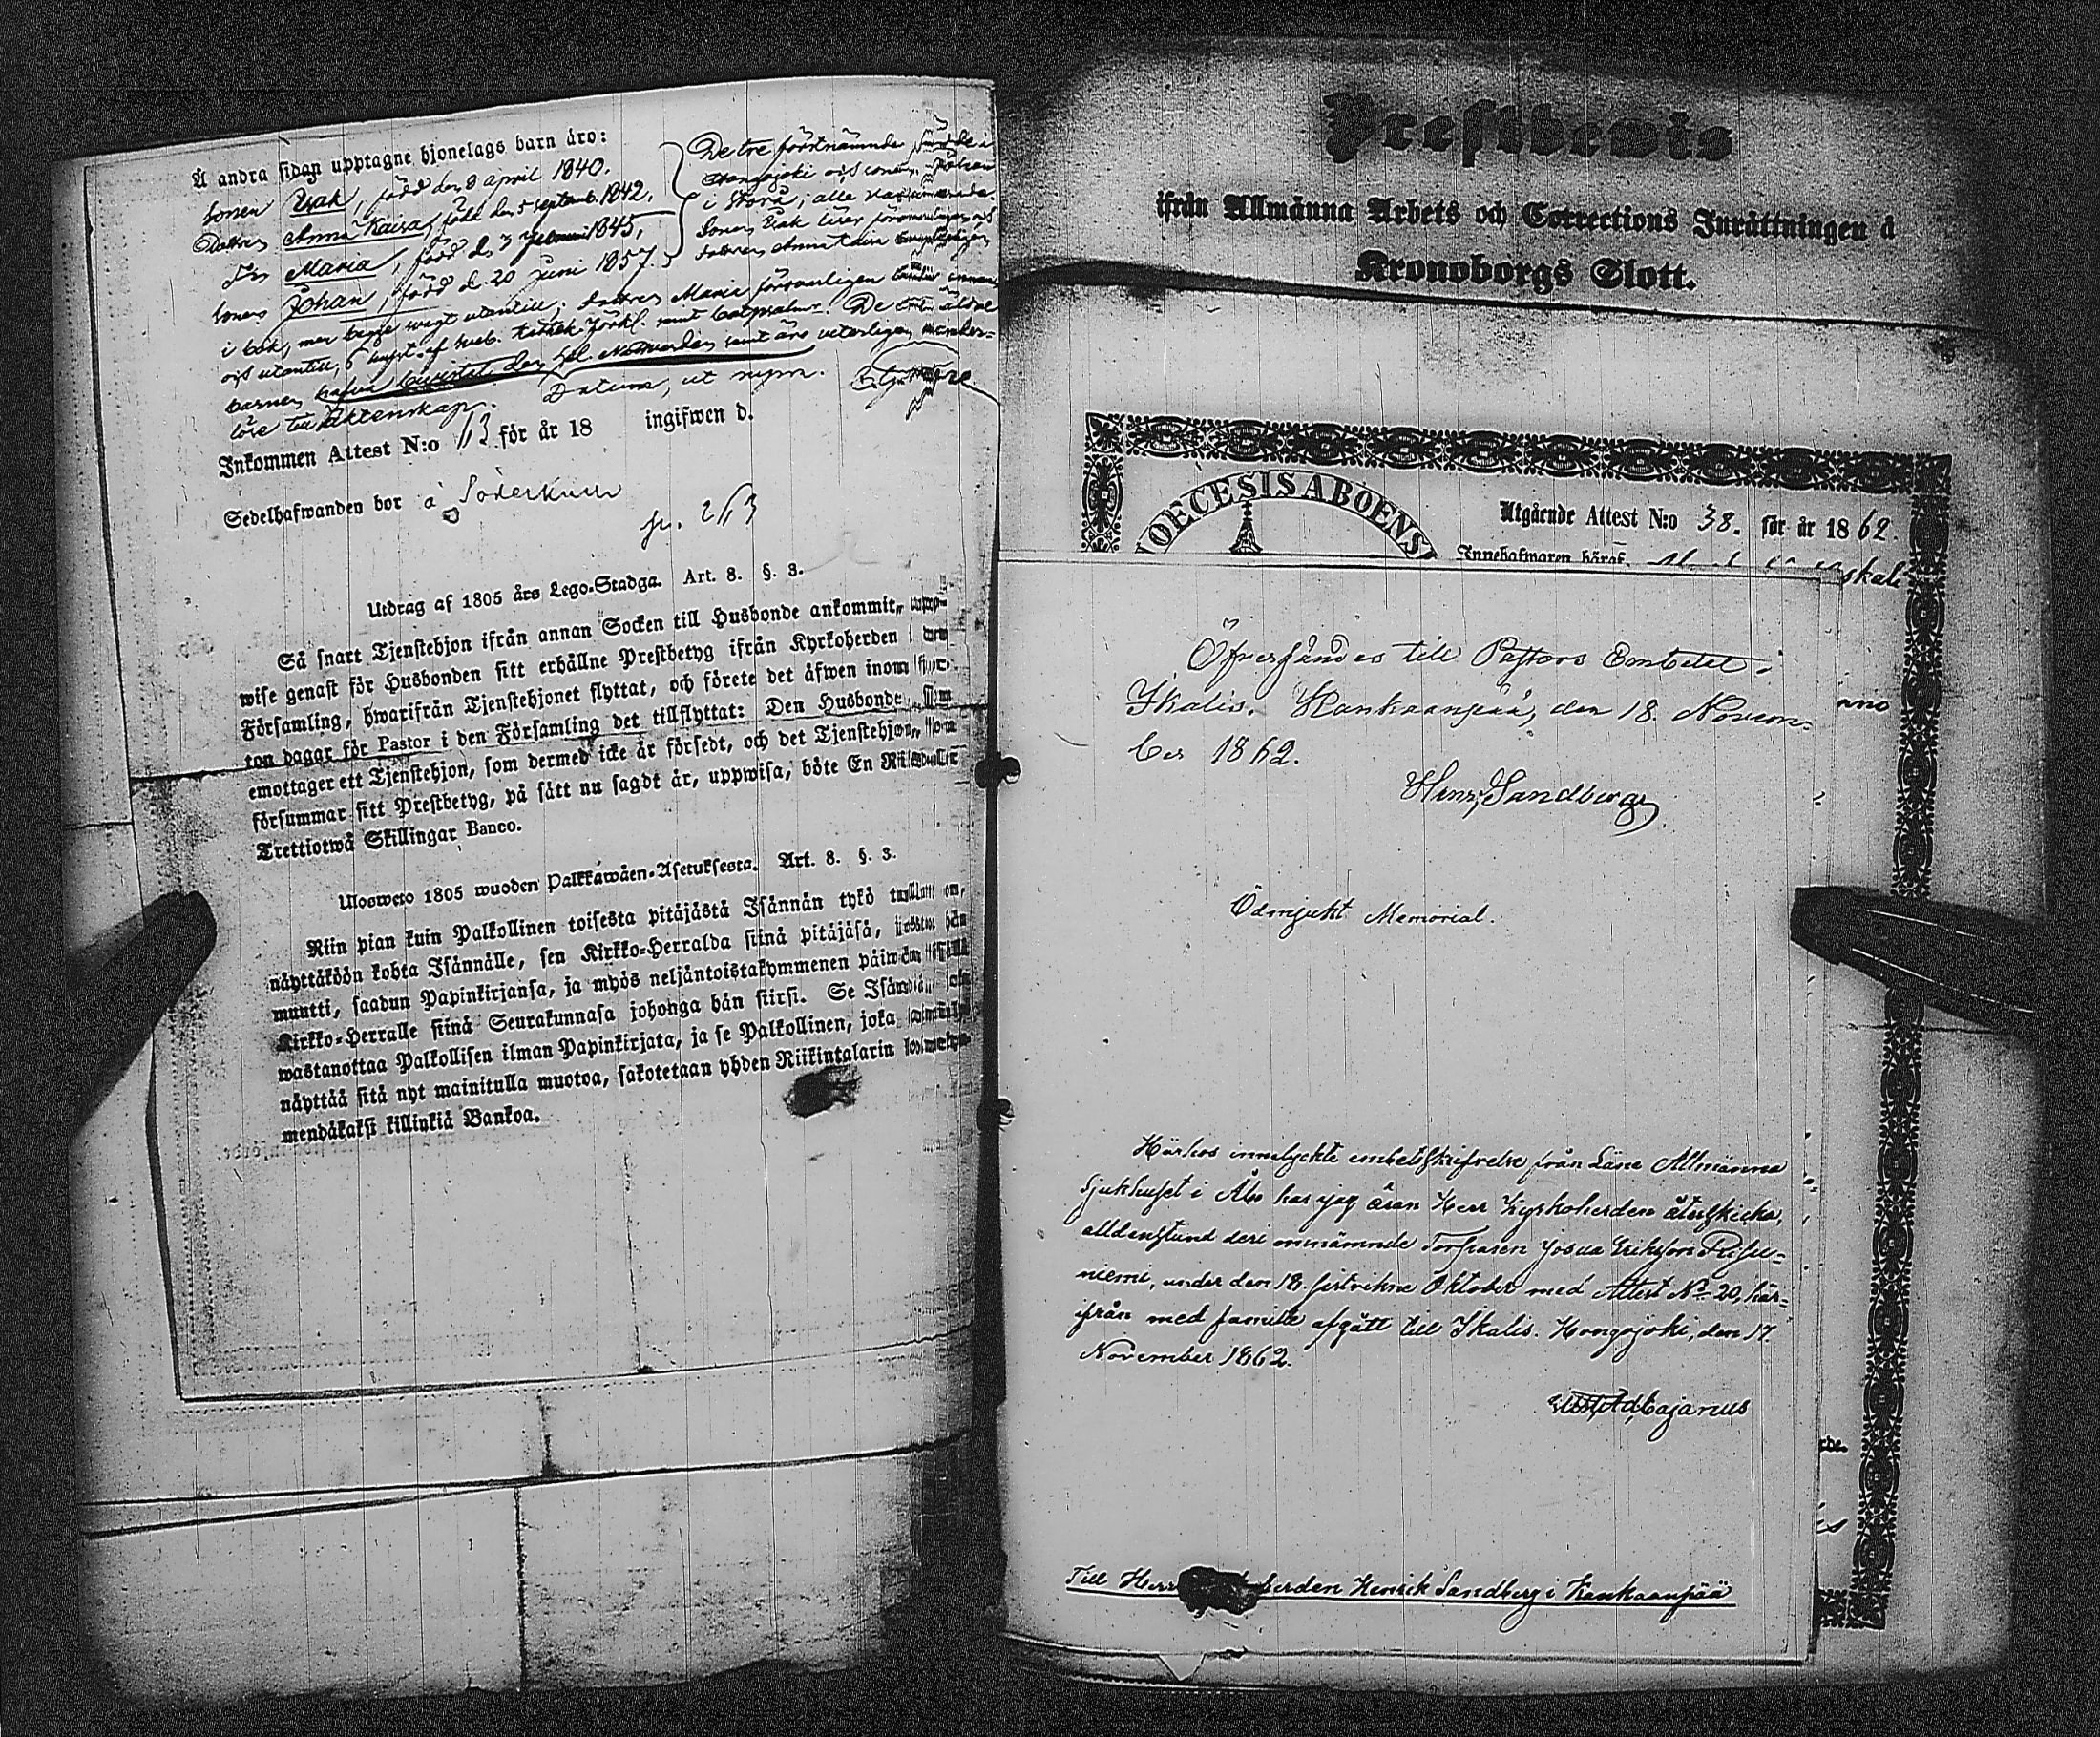 Å andra sidan upptagne hjonelags barn äro:
Sonen Isak, född den 8 april 1840.
Dottren Anna Kaisa, född den 5 septemb. 1842,
Dn Maria, född d. 3 Februari 1845,
Sonen Johan, född d. 20 juni 1857.
De tre förstnämnde födde i
Hongojoki och sonen Johan
i Storå; alle vaccinerade.
Sonen Isak läser försvarligen och
dottren Anna Caisa
i bok, men begge svagt utantill; dottren Maria försvarligen innan
och utantill, 5 hufst. af sveb. kathek. förkl. samt botpsalmer. De äldre
barnen hafva begått den Hel. Nattvarden samt äro veterligen
löse till Äktenskap. Datum, ut supra.
Inkommen Attest N:o 113 för år 18 ingifwen d.
Sedelhafwanden bor å Söderkulla
p. 263
Utdrag af 1805 års Lego-Stadga. Art. 8. §. 3.
Så snart Tjenstehjon ifrån annan Socken till Husbonde ankommit, upp-
wise genast för Husbonden sitt erhållne Prestbetyg ifrån Kyrkoherden i den
Församling, hwarifrån Tjenstehjonet flyttat, och förete det äfwen inom fjor-
ton dagar för Pastor i den Församling det tillflyttat: Den Husbonde, som
emottager ett Tjenstehjon, som dermed icke är försedt, och det Tjenstehjon, som
försummar sitt Prestbetyg, på sätt nu sagdt är, uppwisa, böte En Riksdaler
Trettiotwå Skillingar Banco.
Ulosweto 1805 wuoden Palkkawäen-Asetuksesta. Art. 8. §. 3.
Niin pian kuin Palkollinen toisesta pitäjästä Isännän tykö tullut on,
näyttäköön kohta Isännälle, sen Kirkko-Herralda siinä pitäjäsä, josta hän
muutti, saadun Papinkirjansa, ja myös neljäntoistakymmenen päiwän sisällä
Kirkko-Herralle siinä Seurakunnasa johonga hän siirsi. Se Isäntä, joka
wastanottaa Palkollisen ilman Papinkirjata, ja se Palkollinen, joka
näyttää sitä nyt mainitulla muotoa, sakotetaan yhden Riikintalarin
mendäkaksi killinkiä Bankoa.
Prestbewis
ifrån Allmänna Arbets och Corrections Inrättningen å
Kronoborgs Slott.
DIOECESIS ABOENSIS
Utgående Attest N:o 38. för år 1862.
Innehafwaren häraf,
Öfversändes till Pastors Embetet i
Ikalis. Kankaanpää, den 18. Novem-
ber 1862.
Henr. Sandberg
Ödmjukt Memorial.
Härhos innelyckte embetsskrifvelse från Läne Allmänna
Sjukhuset i Åbo har jag äran Herr Kyrkoherden återskicka,
alldenstund deri omnämnde Torparen Josua Eriksson Pusu-
niemi, under den 18. sistvikne Oktober med Attest No 20, här-
ifrån med familie afgått till Ikalis. Hongojoki, den 17.
November 1862.
Cajanus
Till Herr herden Henrik Sandberg i Kankaanpää